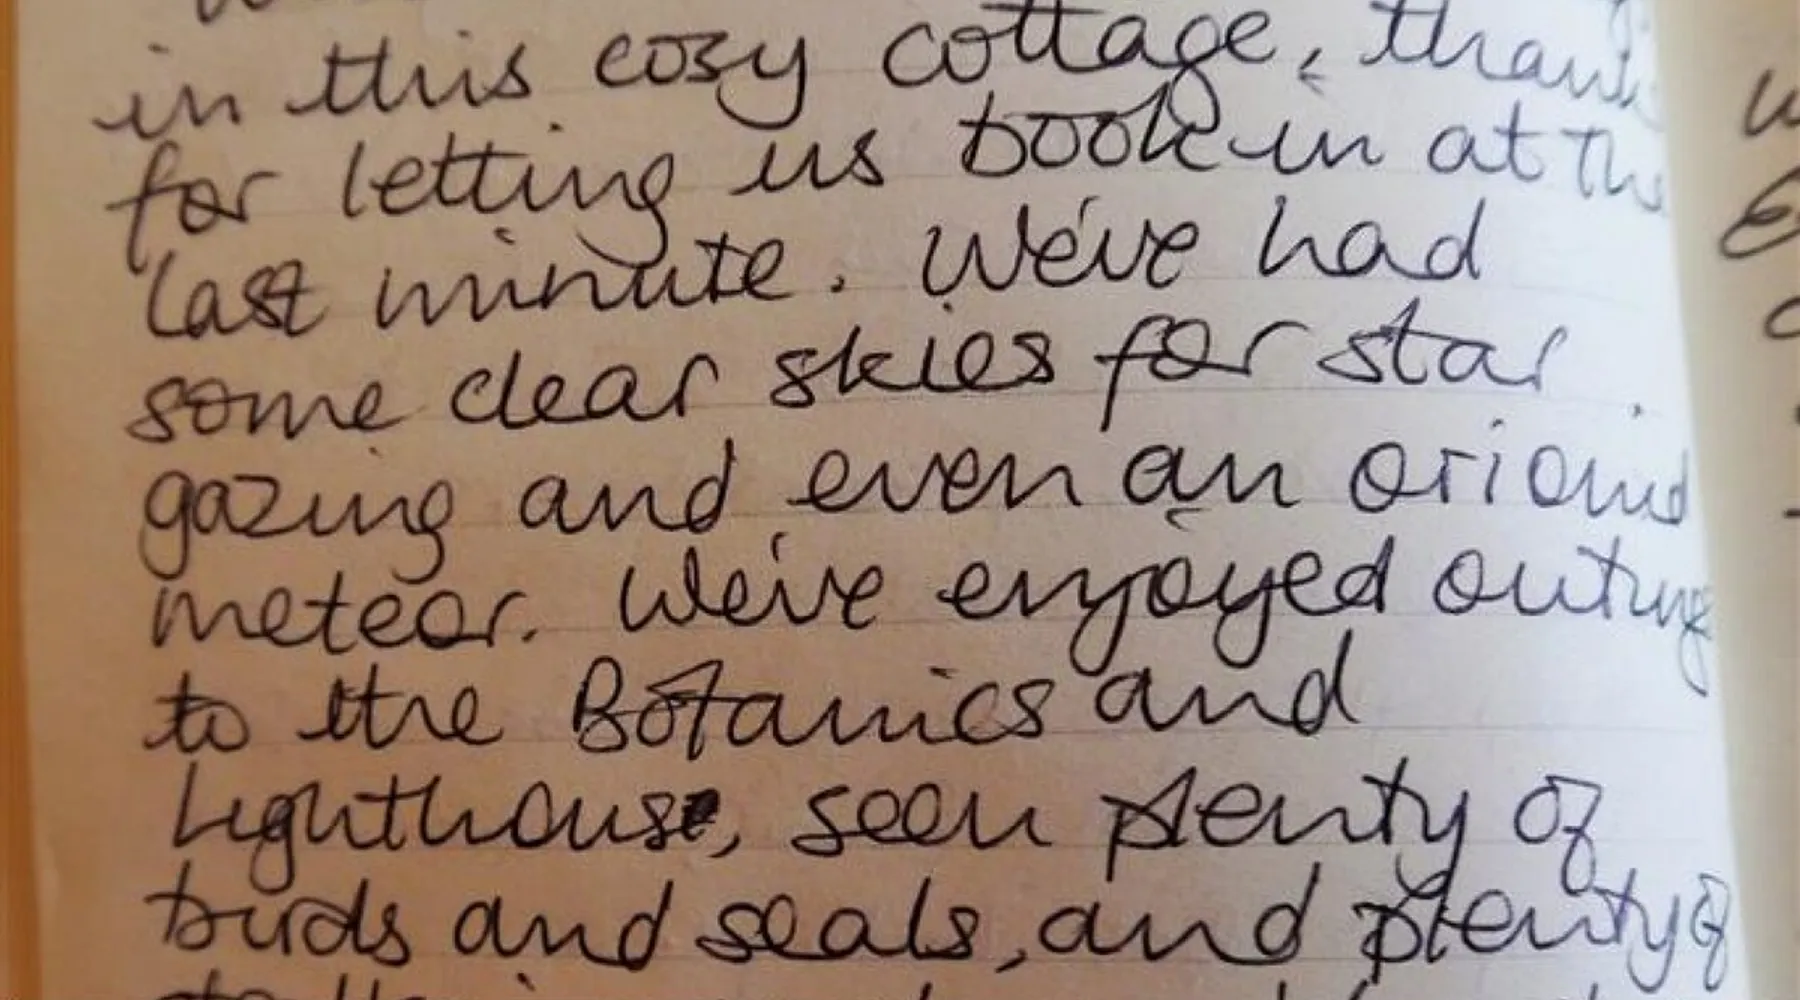 in this cosy cottage, thanks
for letting us book in at the
last minute. We've had
some clear skies for star
gazing and even an orionid
meteor. We've enjoyed outings
to the Botanics and
Lighthouse, seen plenty of
birds and seals, and plenty of